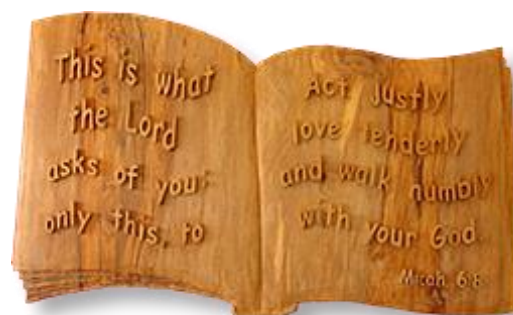 This is what
the Lord
asks of you:
only this, to
Act justly
love tenderly
and walk humbly
with your God.
Micah 6:8